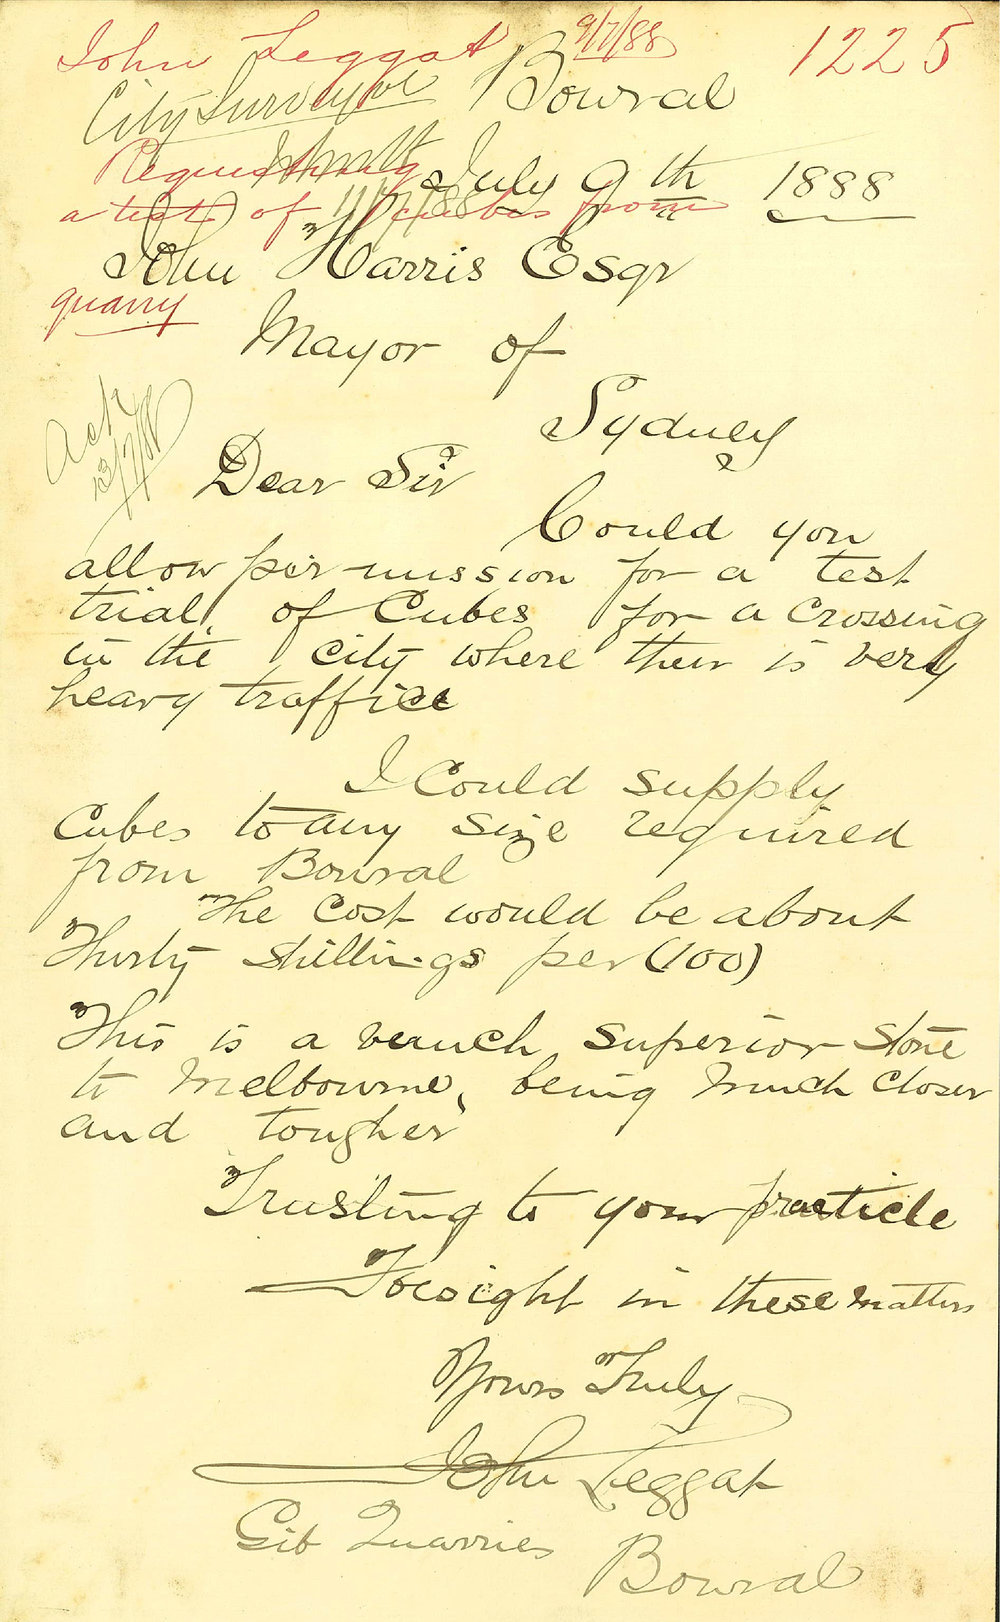 John Leggat 9/7/88 1225
City Surveyor Bowral
Requesting July 9th 1888
a test of cubes from 11/7/88
John Harris Esqr
quarry
Mayor of
Sydney
Ack
13/7/88
Dear Sir
Could you
allow permission for a test
trial of Cubes for a crossing
in the city where their is very
heavy traffice
I Could supply
Cubes to any size required
from Bowral
The cost would be about
Thirty shillings per (100)
This is a much superior stone
to Melbourne, being much closer
and tougher
Trusting to your practicle
Foresight in these matters
Yours Truly
John Leggat
Gib Quarries
Bowral